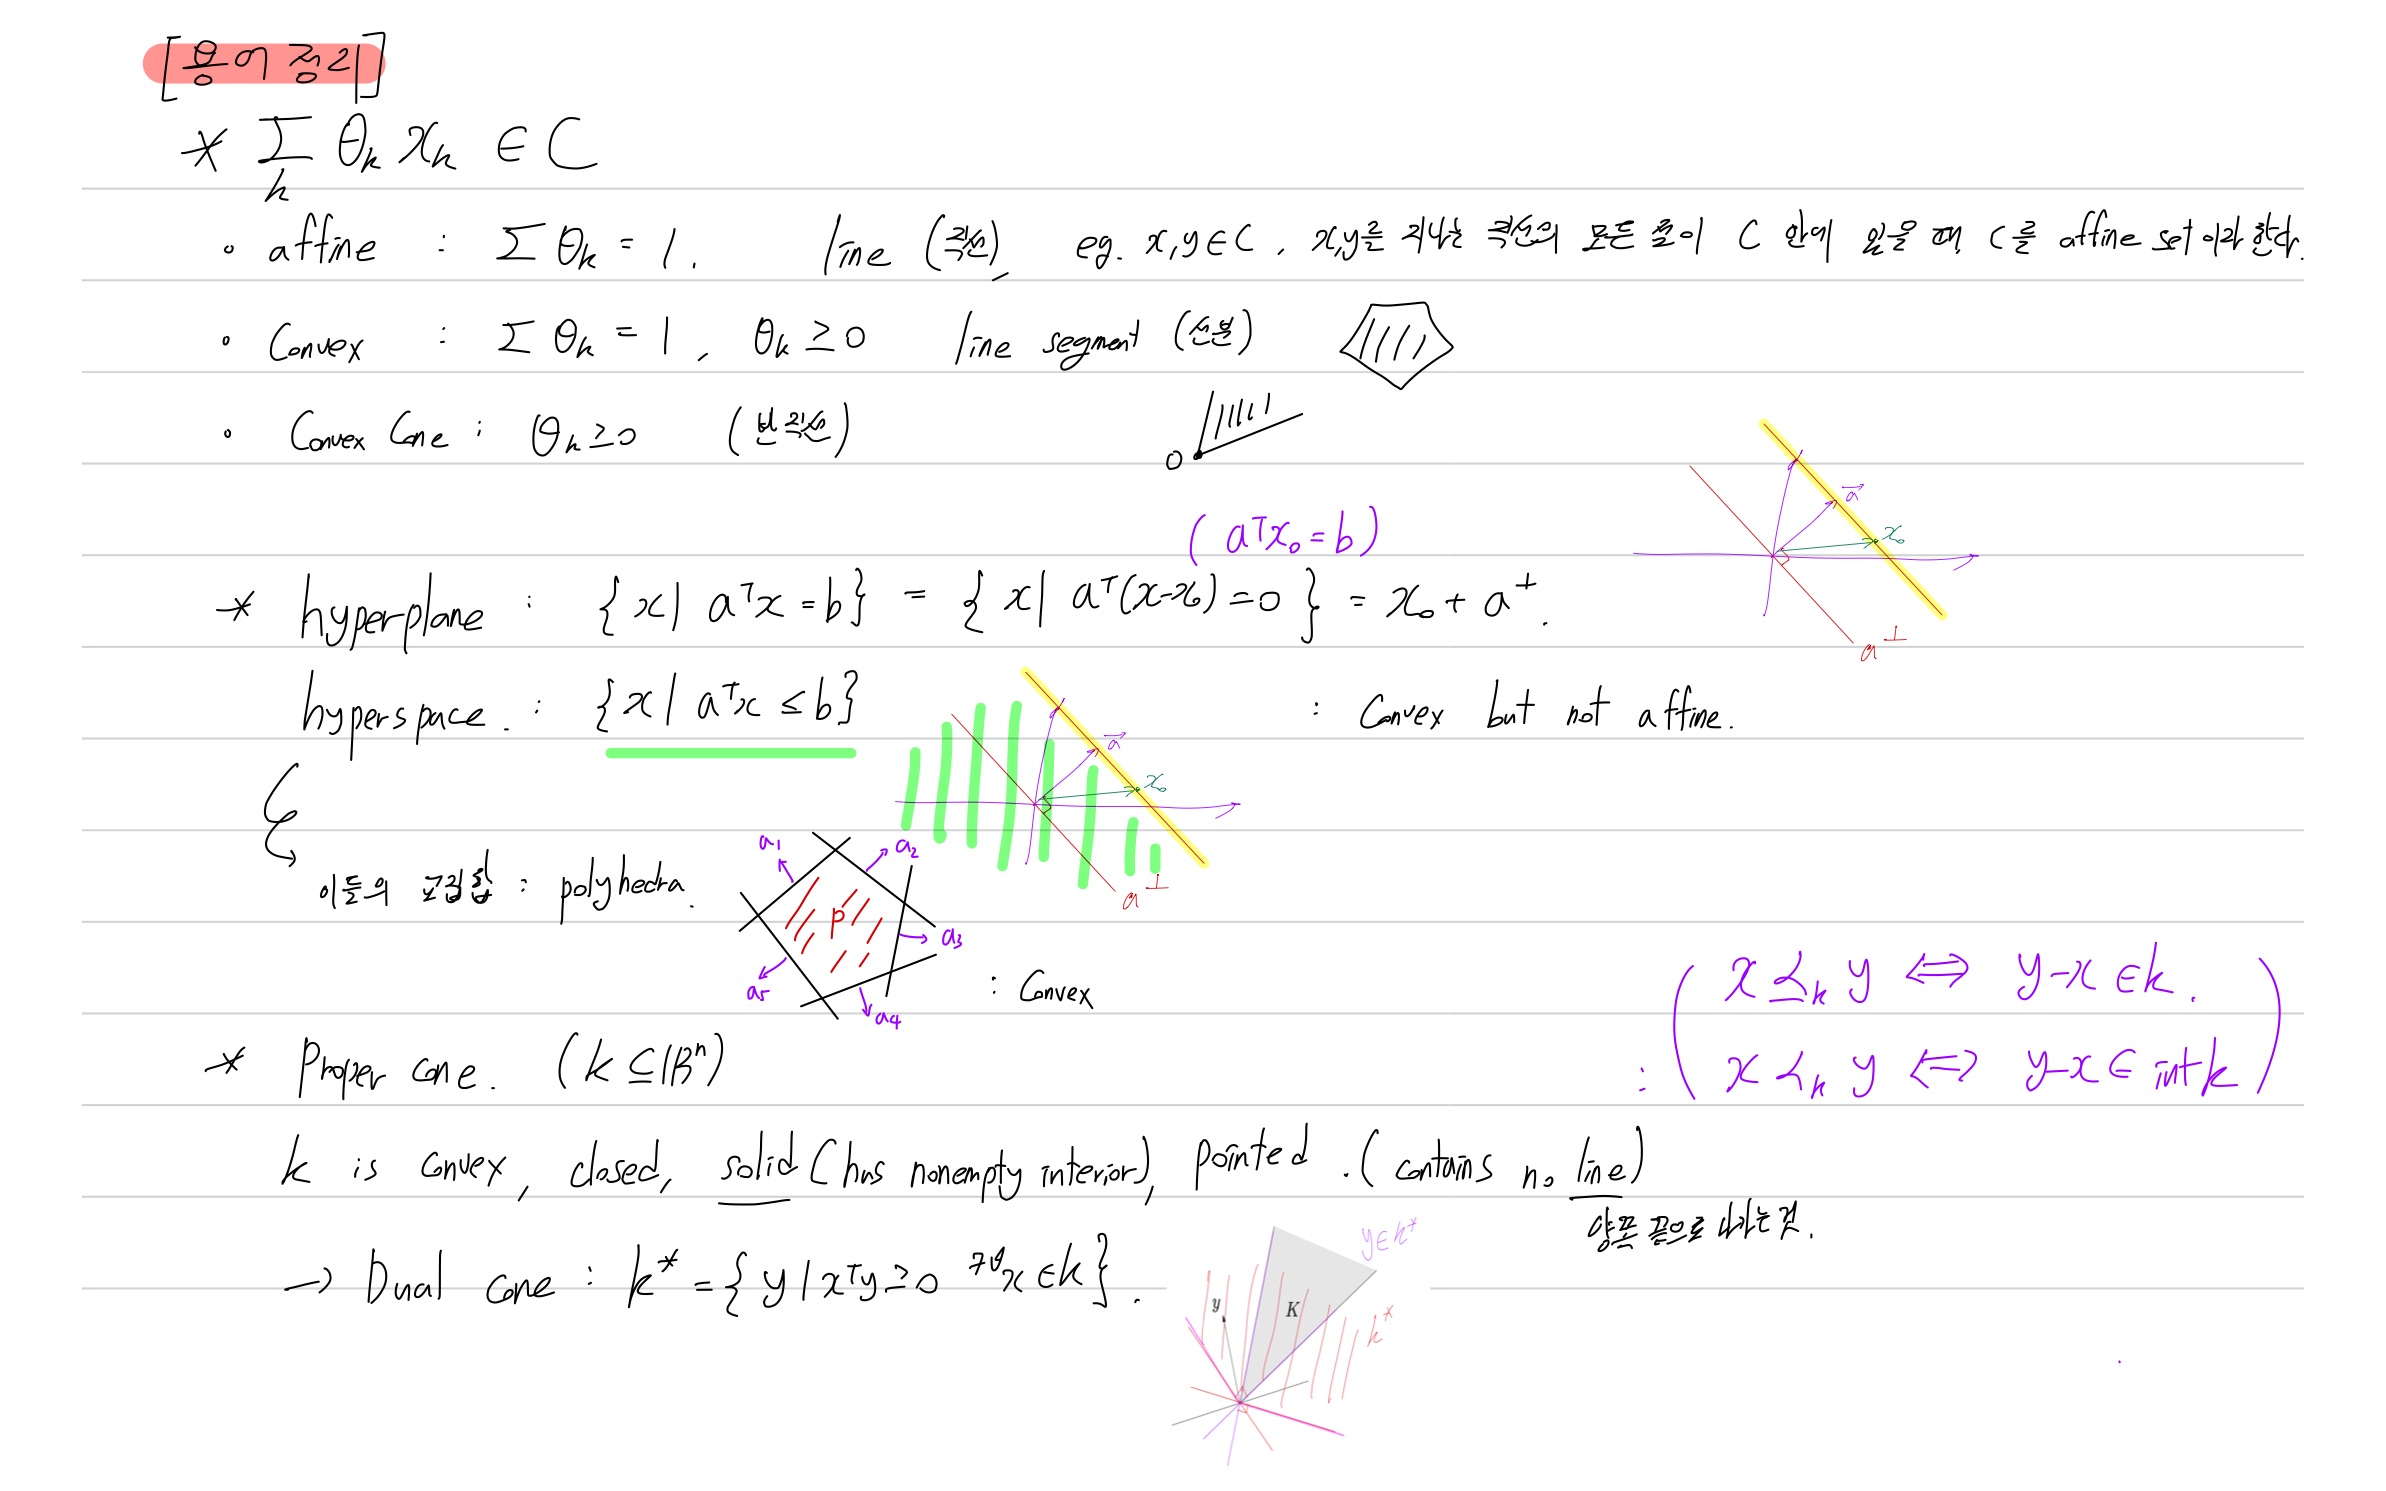 [용어 정리]
* ∑_k θ_k x_k ∈ C
∘ affine : ∑ θ_k = 1. line (직선), eg. x,y ∈ C, x,y를 지나는 직선의 모든 점이 C 안에 있을 때, C를 affine set이라 한다.
∘ Convex : ∑ θ_k = 1, θ_k ≥ 0 line segment (선분)
∘ Convex Cone : θ_k ≥ 0 (반직선)
0
(aᵀx₀ = b)
* hyperplane : {x | aᵀx = b} = {x | aᵀ(x-x₀) = 0} = x₀ + a^⊥.
a⃗
x₀
a^⊥
hyperspace. : {x | aᵀx ≤ b} : Convex but not affine.
a⃗
x₀
a^⊥
이들의 교집합 : polyhedra.
a₁
a₂
P
a₃
a₄
a₅
: Convex
* Proper cone. (k ⊆ ℝⁿ)
: ( x ⪯_k y ⇔ y-x ∈ k.
x ≺_k y ⇔ y-x ∈ int k )
k is convex, closed, solid (has nonempty interior), pointed. (contains no line)
양쪽 끝으로 나가는 것.
→ Dual cone : k* = {y | xᵀy ≥ 0 ∀x ∈ k}.
y ∈ k*
y
K
k*